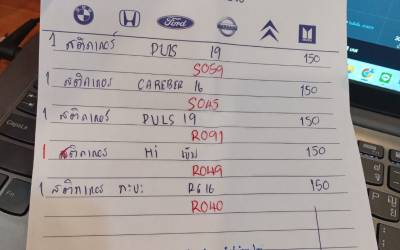 Ford
1 สติกเกอร์ PULS 19 150
SO59
1 สติกเกอร์ CAREBER 16 150
SO45
1 สติกเกอร์ PULS 19 150
RO91
1 สติกเกอร์ Hi 150
RO49
1 สติกเกอร์ กะบะ RG16 150
RO40